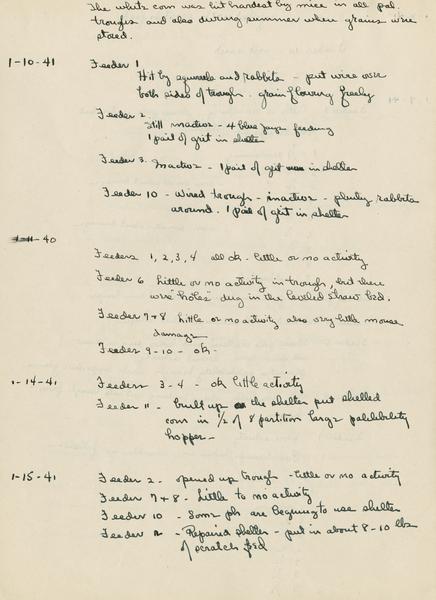 The white corn was hit hardest by mice in all pal.
troughs and also during summer when grains were
stored.
1-10-41 Feeder 1
Hit by squirrels and rabbits - put wire over
both sides of trough. grain flowing freely
Feeder 2.
Still inactive - 4 blue jays feeding
1 pail of grit in shelter
Feeder 3. Inactive - 1 pail of grit in shelter
Feeder 10 - wired trough - inactive - plenty rabbits
around. 1 pail of grit in shelter
1-11-40
Feeders 1, 2, 3, 4 all ok - little or no activity
Feeder 6 Little or no activity in trough, but there
were "holes" dug in the leveled straw bed.
Feeder 7+8 little or no activity also very little mouse
damage
Feeders 9-10 - ok -
1-14-41 Feeders 3-4 - ok little activity
Feeder 11 - built up the shelter put shelled
corn in 1/2 of 8 partition large palatibility
hopper -
1-15-41 Feeder 2 - opened up trough - little or no activity
Feeder 7+8 - Little to no activity
Feeder 10 - Some ph are beginning to use shelter
Feeder - Repaired shelter - put in about 8-10 lbs
of scratch feed